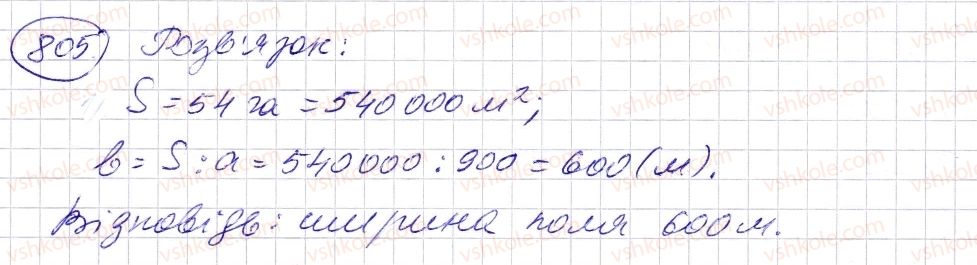 805. Розв'язок:
S = 54 га = 540 000 м²;
b = S : a = 540000 : 900 = 600 (м).
Відповідь: ширина поля 600 м.